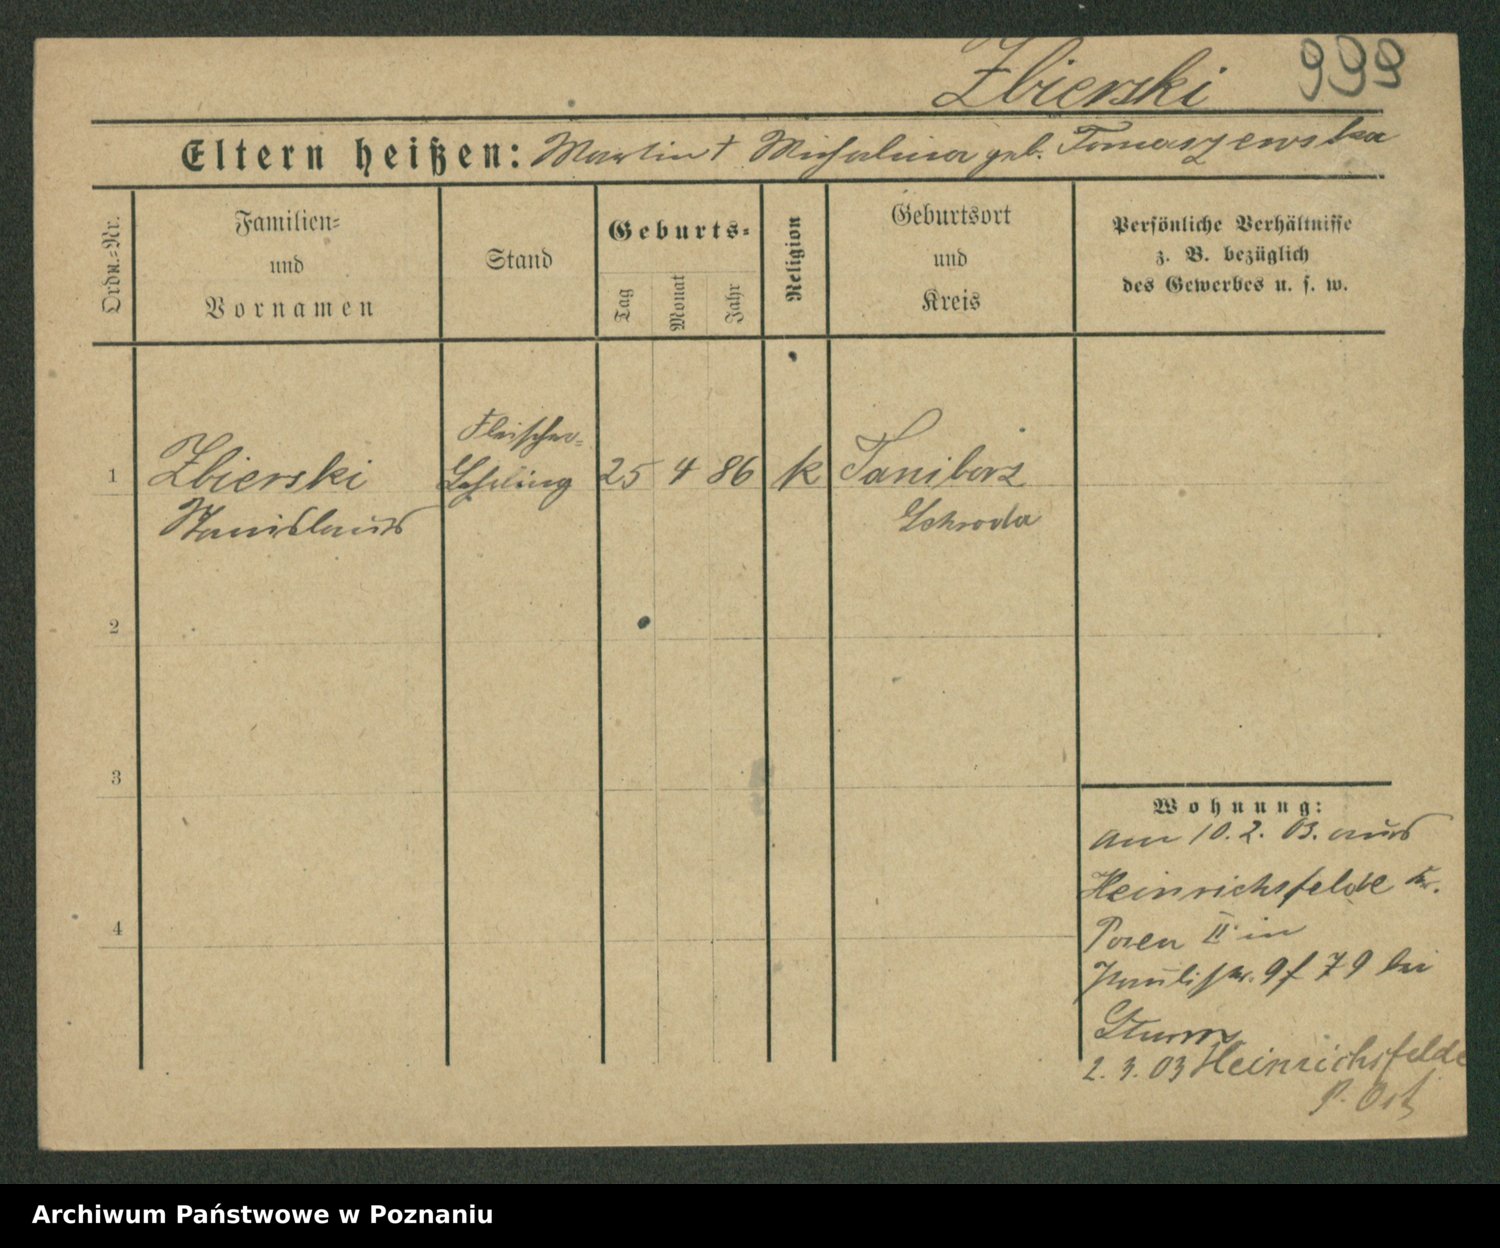 Zbierski 999
Eltern heißen: Martin † Michalina geb. Tomaszewska
Ordn.=Nr.
Familien=
und
Vornamen
Stand
Geburts=
Tag
Monat
Jahr
Religion
Geburtsort
und
Kreis
Persönliche Verhältnisse
z. B. bezüglich
des Gewerbes u. s. w.
Fleischer=
1 Zbierski Lehrling 25 4 86 k Taniborz
Stanislaus Schroda
2
3
4
Wohnung:
am 10. 2. 03. aus
Heinrichsfelde Kr.
Posen II in
79 bei
Sturm
2. 3. 03 Heinrichsfelde
P. Ost
Archiwum Państwowe w Poznaniu